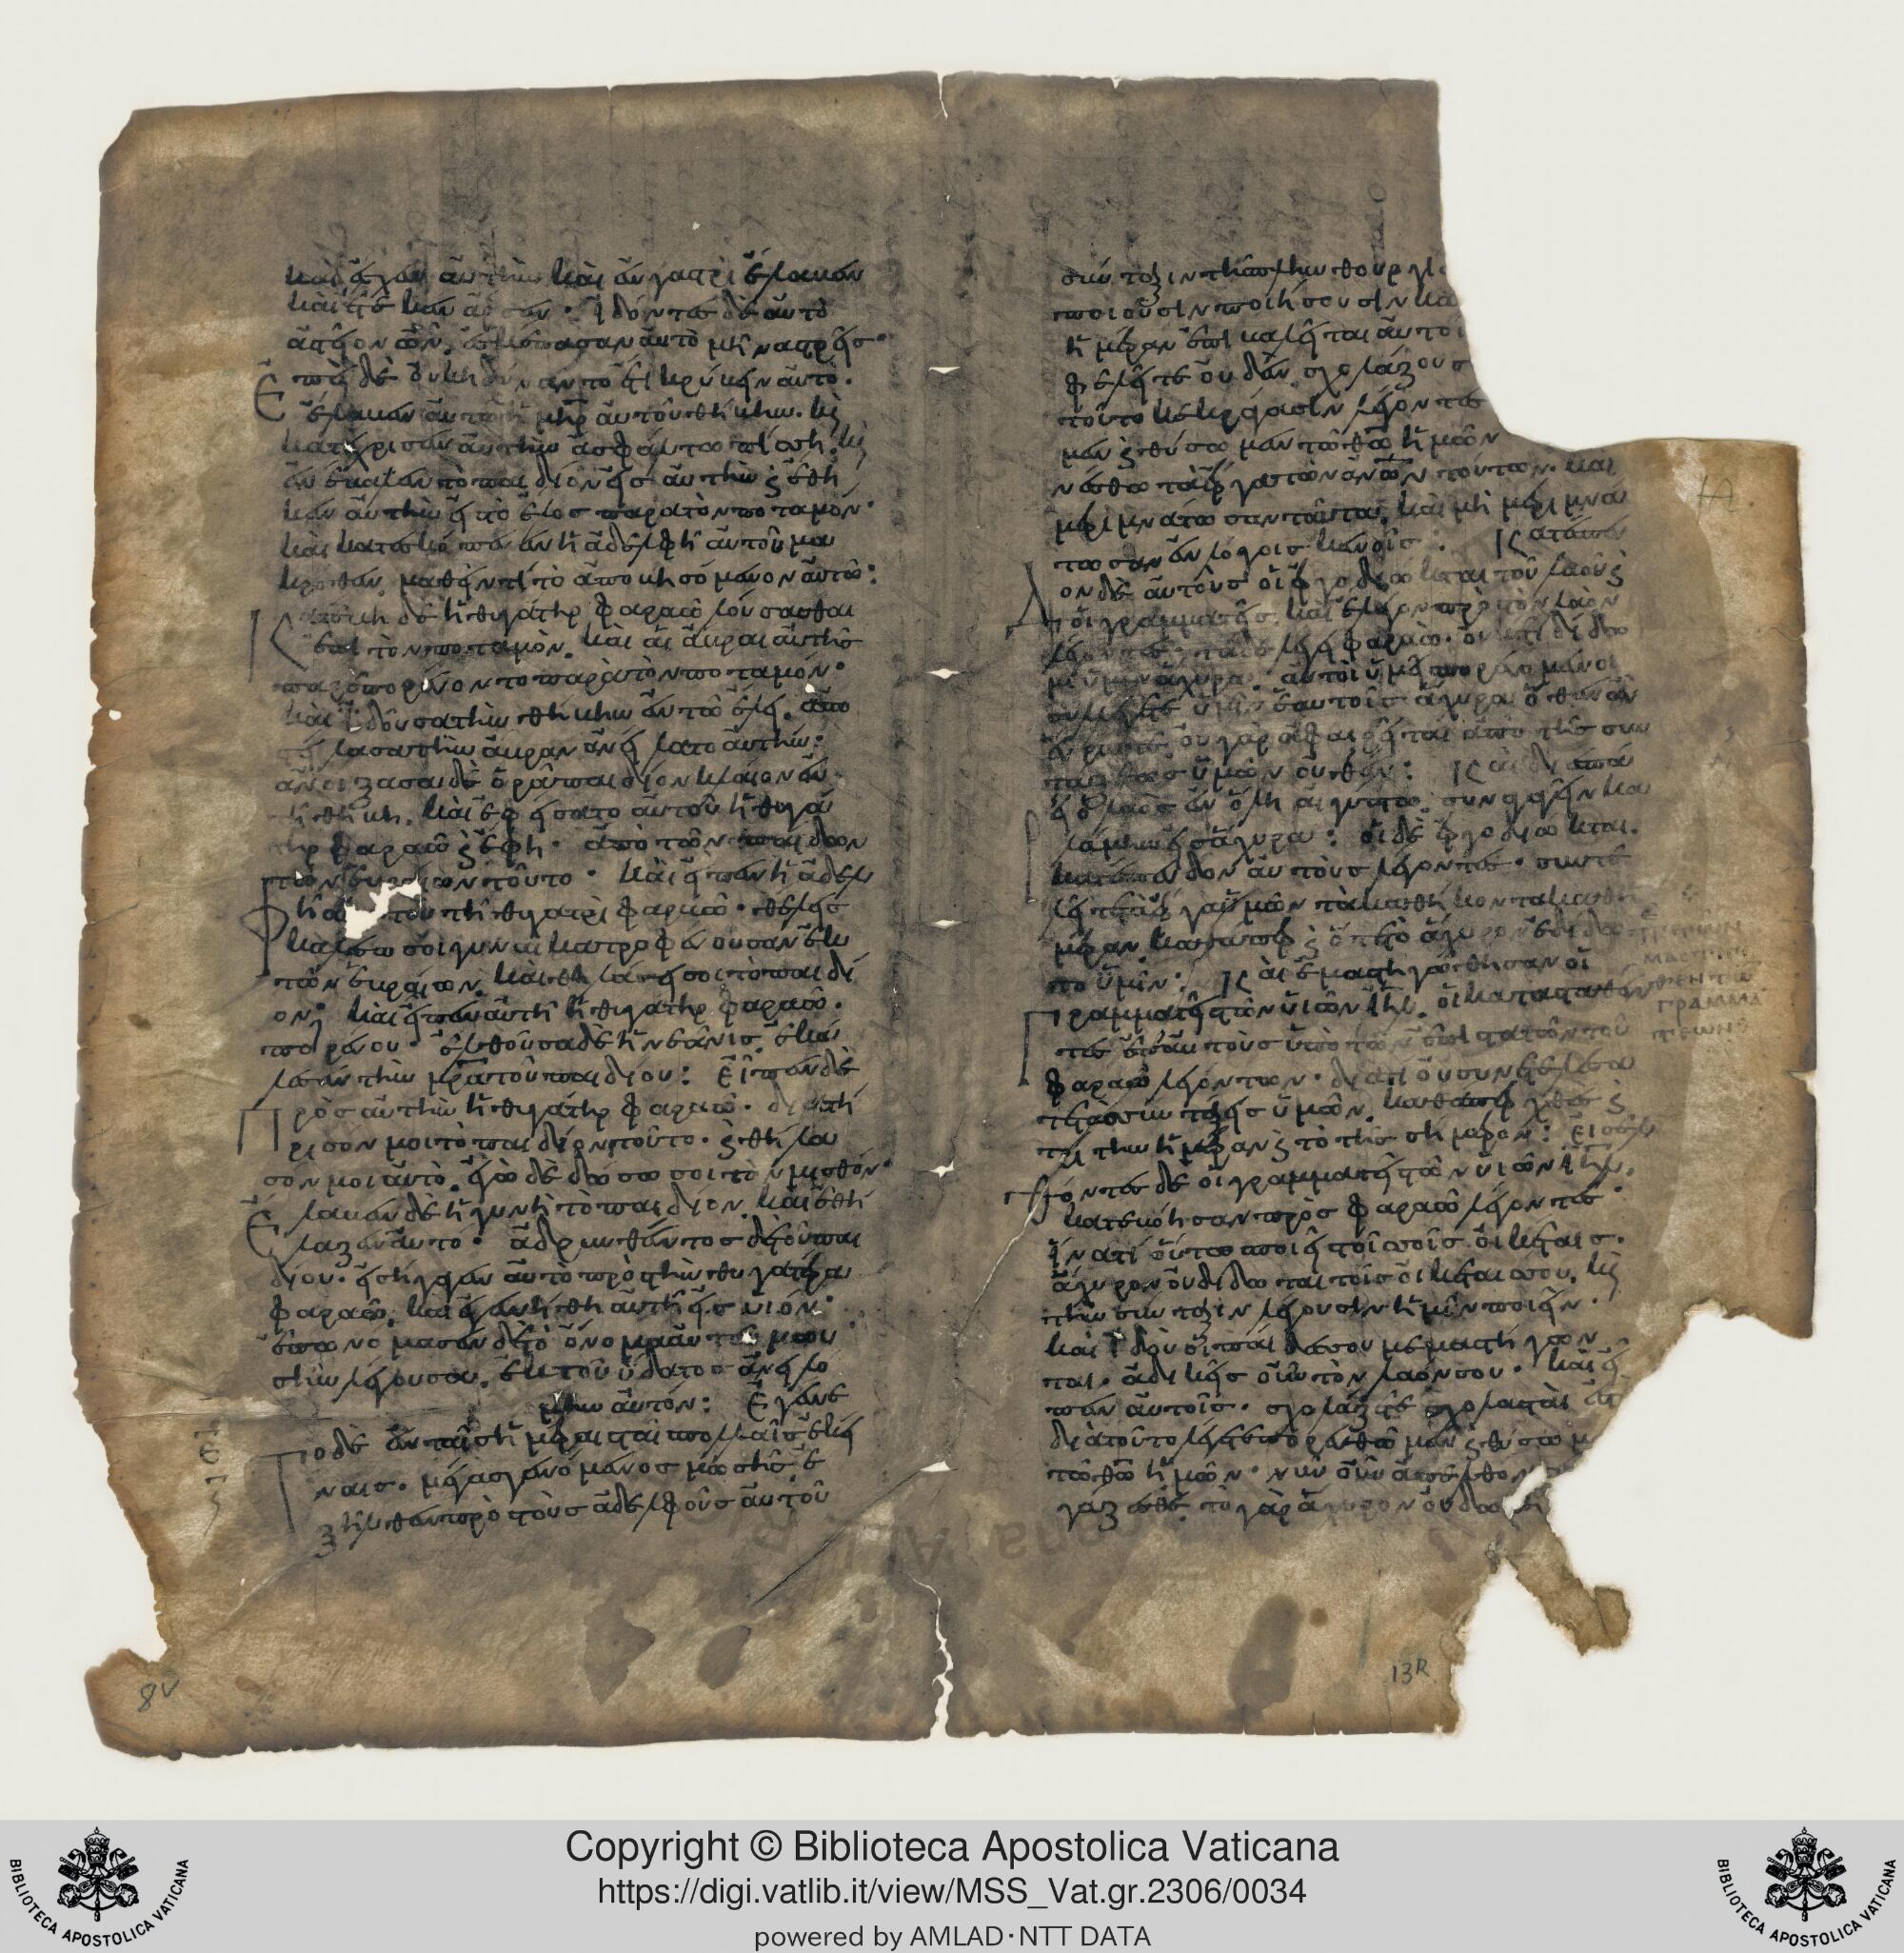 καὶ ἔσχεν αὐτὴν καὶ ἐν γαστρὶ ἔλαβεν
καὶ ἔτεκεν ἄρσεν· ἰδόντες δὲ αὐτὸ
ἀστεῖον ὄν, ἐσκέπασαν αὐτὸ μῆνας τρεῖς·
ἐπεὶ δὲ οὐκ ἠδύναντο ἔτι κρύβειν αὐτό.
Ἔλαβεν αὐτῶ ἡ μηρ αὐτοῦ θήβην. καὶ
κατέχρισεν αὐτὴν ἀσφάλτω πίσση. καὶ
ἐνέβαλεν τὸ παιδίον εἰς αὐτὴν καὶ ἔθη
κεν αὐτὴν εἰς τὸ ἕλος παρὰ τὸν ποταμόν·
καὶ κατεσκόπευεν ἡ ἀδελφὴ αὐτοῦ μα
κρόθεν, μαθεῖν τί τὸ ἀποβησόμενον αὐτῶ:
Κατέβη δὲ ἡ θυγάτηρ φαραὼ λούσασθαι
ἐπὶ τὸν ποταμὸν, καὶ αἱ ἅβραι αὐτῆς
παρεπορεύοντο παρὰ τὸν ποταμόν·
καὶ ἰδοῦσα τὴν θήβην ἐν τῶ ἕλει, ἀπο
στείλασα τὴν ἅβραν ἀνείλατο αὐτήν:
ἀνοίξασα δὲ ὁρᾶ παιδίον κλαῖον ἐν
τῆ θήβη. καὶ ἐφείσατο αὐτοῦ ἡ θυγά
τηρ φαραὼ καὶ ἔφη· ἀπὸ τῶν παιδίων
τῶν ἑβραίων τοῦτο· Καὶ εἶπεν ἡ ἀδελ
φὴ αὐτοῦ τῆ θυγατρὶ φαραώ· θέλεις
καλέσω σοι γυναῖκα τροφεύουσαν ἐκ
τῶν ἑβραίων, καὶ θηλάσει σοι τὸ παιδί
ον; καὶ εἶπεν αὐτῆ ἡ θυγάτηρ φαραώ·
πορεύου· ἐλθοῦσα δὲ ἡ νεᾶνις ἐκά
λεσεν τὴν μρα τοῦ παιδίου: Εἶπεν δὲ
Πρὸς αὐτὴν ἡ θυγάτηρ φαραώ· διατή
ρησόν μοι τὸ παιδίον τοῦτο· καὶ θήλα
σόν μοι αὐτό, ἐγὼ δὲ δώσω σοι τὸν μισθόν·
Ἔλαβεν δὲ ἡ γυνὴ τὸ παιδίον, καὶ ἐθή
λαζεν αὐτό· ἁδρυνθέντος δὲ τοῦ παι
δίου· εἰσήγαγεν αὐτὸ πρὸς τὴν θυγατέρα
φαραώ, καὶ ἐγενήθη αὐτῆ εἰς υἱόν·
ἐπωνόμασεν δὲ τὸ ὄνομα αὐτοῦ μωυ
σῆν λέγουσα, ἐκ τοῦ ὕδατος ἀνειλό
μην αὐτόν: Ἐγένε
Το δὲ ἐν ταῖς ἡμέραις ταῖς πολλαῖς ἐκεί
ναις· μέγας γενόμενος μωσῆς ἐ
ξῆλθεν πρὸς τοὺς ἀδελφοὺς αὐτοῦ
8V
σύνταξιν τῆς πλινθουργί
ποιοῦσιν ποιήσουσιν κα
ἡμέραν ἐπικαλεῖται αὐτοῖ
ἀφελεῖτε οὐδέν, σχολάζουσ
τοῦτο κεκράγασιν λέγοντες
μεν καὶ θύσωμεν τῶ θω ἡμῶν
νέσθω τὰ ἔργα τῶν ἀνων τούτων. καὶ
μεριμνάτωσαν ταῦτα, καὶ μὴ μεριμνά
τωσαν ἐν λόγοις κενοῖς: Κατέσπευ
Δον δὲ αὐτοὺς οἱ ἐργοδιῶκται τοῦ λαοῦ καὶ
οἱ γραμματεῖς, καὶ ἔλεγον πρὸς τὸν λαὸν
λέγοντες· τάδε λέγει φαραώ· οὐκέτι δίδω
μι ὑμῖν ἄχυρα· αὐτοὶ ὑμεῖς πορευόμενοι
συλλέγετε ὑμῖν ἑαυτοῖς ἄχυρα ὅθεν ἐὰν
εὕρητε, οὐ γὰρ ἀφαιρεῖται ἀπὸ τῆς συν
τάξεως ὑμῶν οὐθέν: Καὶ διεσπά
ρη ὁ λαὸς ἐν ὅλη αἰγύπτω, συναγαγεῖν κα
λάμην εἰς ἄχυρα: οἱ δὲ ἐργοδιῶκται.
κατέσπευδον αὐτοὺς λέγοντες· συντε
λεῖτε τὰ ἔργα ὑμῶν τὰ καθήκοντα καθ' ἡ
μέραν καθάπερ καὶ ὅτε τὸ ἄχυρον ἐδίδο
το ὑμῖν: Καὶ ἐμαστιγώθησαν οἱ
Γραμματεῖς τῶν υἱῶν ιηλ, οἱ κατασταθέν
τες ἐπ' αὐτοὺς ὑπὸ τῶν ἐπιστατῶν τοῦ
φαραὼ λεγόντων· διατί οὐ συνετελέσα
τε τὰς συντάξεις ὑμῶν, καθάπερ χθὲς καὶ
τρίτην ἡμέραν καὶ τὸ τῆς σήμερον: Εἰσελ
Θόντες δὲ οἱ γραμματεῖς τῶν υἱῶν ιηλ,
κατεβόησαν πρὸς φαραὼ λέγοντες·
ἵνα τί οὕτω ποιεῖς τοῖς σοῖς οἰκέταις·
ἄχυρον οὐ δίδωται τοῖς οἰκέταις σου, καὶ
τὴν σύνταξιν λέγουσιν ἡμῖν ποιεῖν·
καὶ ἰδοὺ οἱ παῖδές σου μεμαστίγων
ται· ἀδικεῖς οὖν τὸν λαόν σου· καὶ εἶ
πεν αὐτοῖς· σχολάζετε σχολασταί ἐστε
διὰ τοῦτο λέγετε πορευθῶμεν καὶ θύσω
τῶ θω ἡμῶν· νῦν οὖν ἀπελθόν
γάζεσθε· τὸ γὰρ ἄχυρον οὐ δοθή
ΓΡΑΜΜΑ
13R
Copyright © Biblioteca Apostolica Vaticana
https://digi.vatlib.it/view/MSS_Vat.gr.2306/0034
powered by AMLAD·NTT DATA
BIBLIOTECA APOSTOLICA VATICANA
BIBLIOTECA APOSTOLICA VATICANA